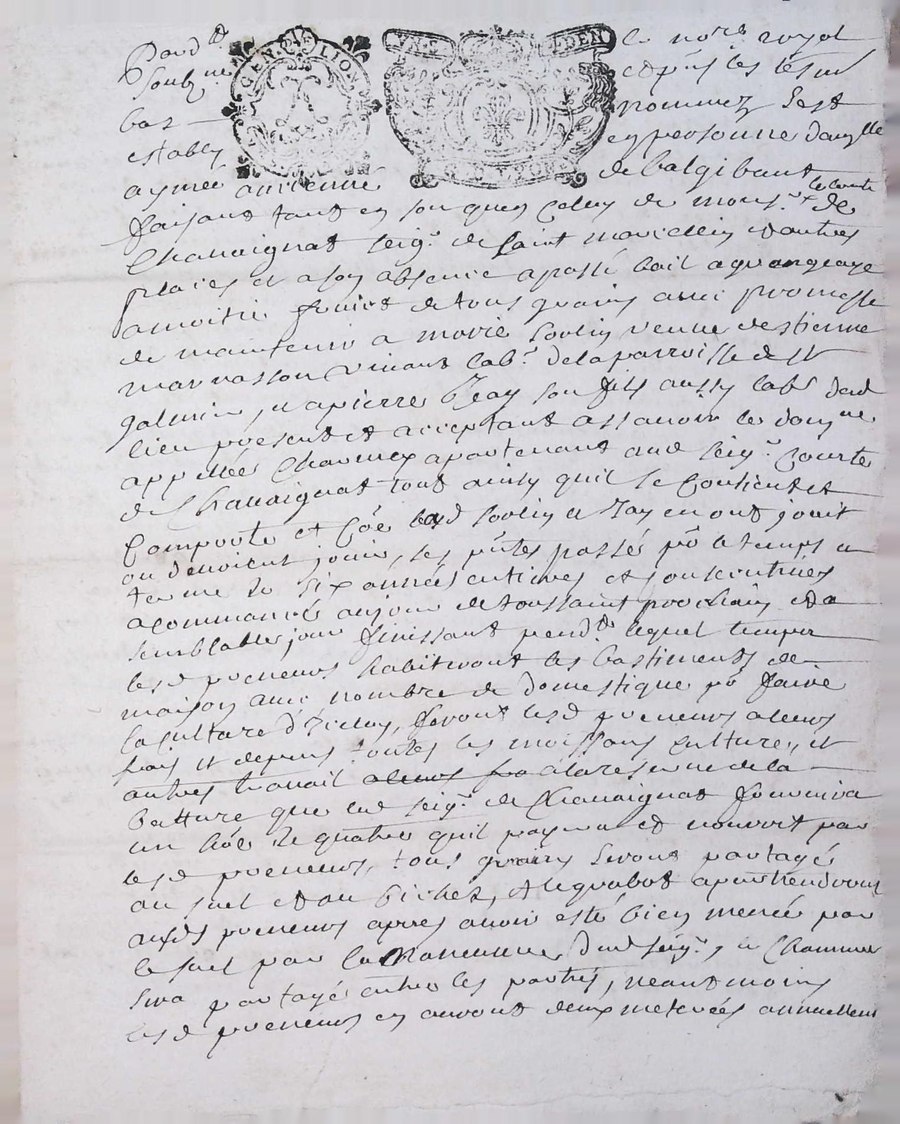 Pard^t le no^re royal
soubz^ne et pns les tesm
bas nommez sest
estably en personne dam^lle
aymée antienne de balgibaut
faisant tant en son que celuy de mons^r le comte de
Chavaignat seig^r de saint marcelin et autres
places et a son absence a passé bail a grangeage
a moitié fruict de tous grains avec promesse
de maintenir a marie veuve destienne
marnasson vivant lab^r de la parroisse de S^t
galmier, et a pierre Jay son fils aussy lab^r dud
lieu present et acceptant assavoir le dom^ne
appellée Charmey apartenant aud seig^r Comte
de Chavaignat tout ainsy quil se contient et
comporte et Côe lesd et Jay en ont jouit
ou devoient jouir, les pñtes passé pō le temps et
terme de six années entieres et consecutives
a commancé au jour de toussaint prochain et a
semblable jour finissant pend^t lequel temps
lesd preneurs habiteront les bastiments de
maison avec nombre de domestique pō faire
la culture diceluy, feront lesd preneurs a leurs
frais et depens toutes les moissons culture, et
autres travail a leurs fra a la reserve de la
batture que led seig^r de Chavaignat fournira
un hôe de quatre quil payera et nourrit par
lesd preneurs, tous grains seront partagé
au suel et au bichet, et apartiendront
ausds preneurs apres avoir esté bien menée par
le suel par la dud seig^r, le Chanvre
sera partagé entre les parties, neantmoins
lesd preneurs en auront deux meterées annuellem
GEN. D. LION
VN.S EDEN